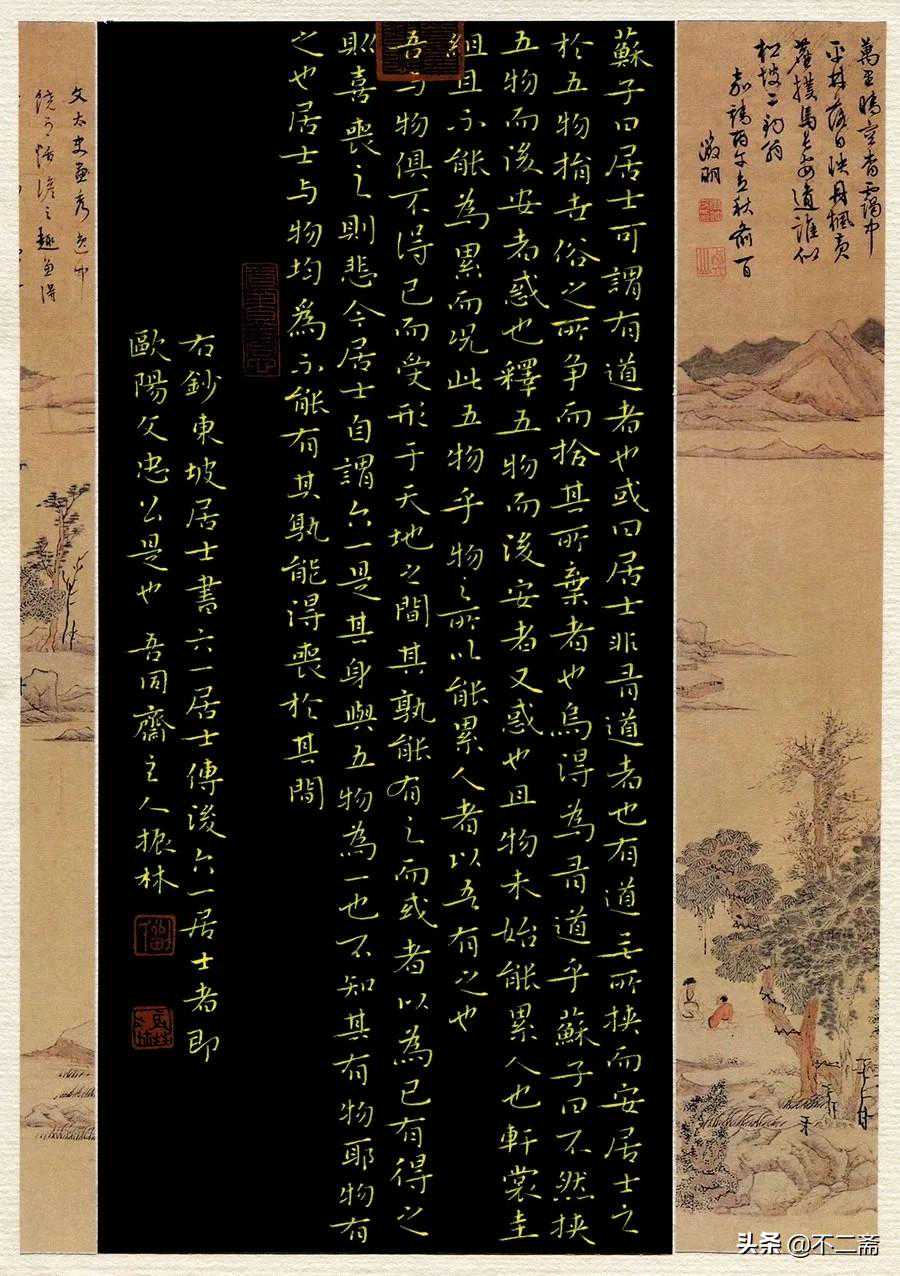 萬里晴空杳靄中
平林落日映丹楓黃
塵撲馬長安道誰似
松坡二釣翁
嘉靖丙午立秋前
徵明
蘇子曰居士可謂有道者也或曰居士非有道者也有道无所挾而安居士之
於五物捐世俗之所争而拾其所棄者也烏得為有道乎蘇子曰不然挾
五物而後安者惑也釋五物而後安者又惑也且物未始能累人也軒裳圭
組且不能為累而況此五物乎物之所以能累人者以吾有之也
吾与物俱不得已而受形于天地之間其孰能有之而或者以為己有得之
則喜喪之則悲今居士自謂六一是其身與五物為一也不知其有物耶物有
之也居士与物均為不能有其孰能得喪於其間
右鈔東坡居士書六一居士傳後六一居士者即
歐陽文忠公是也 吾同齋主人振林
文太史畫秀
之趣
头条 @不二斋